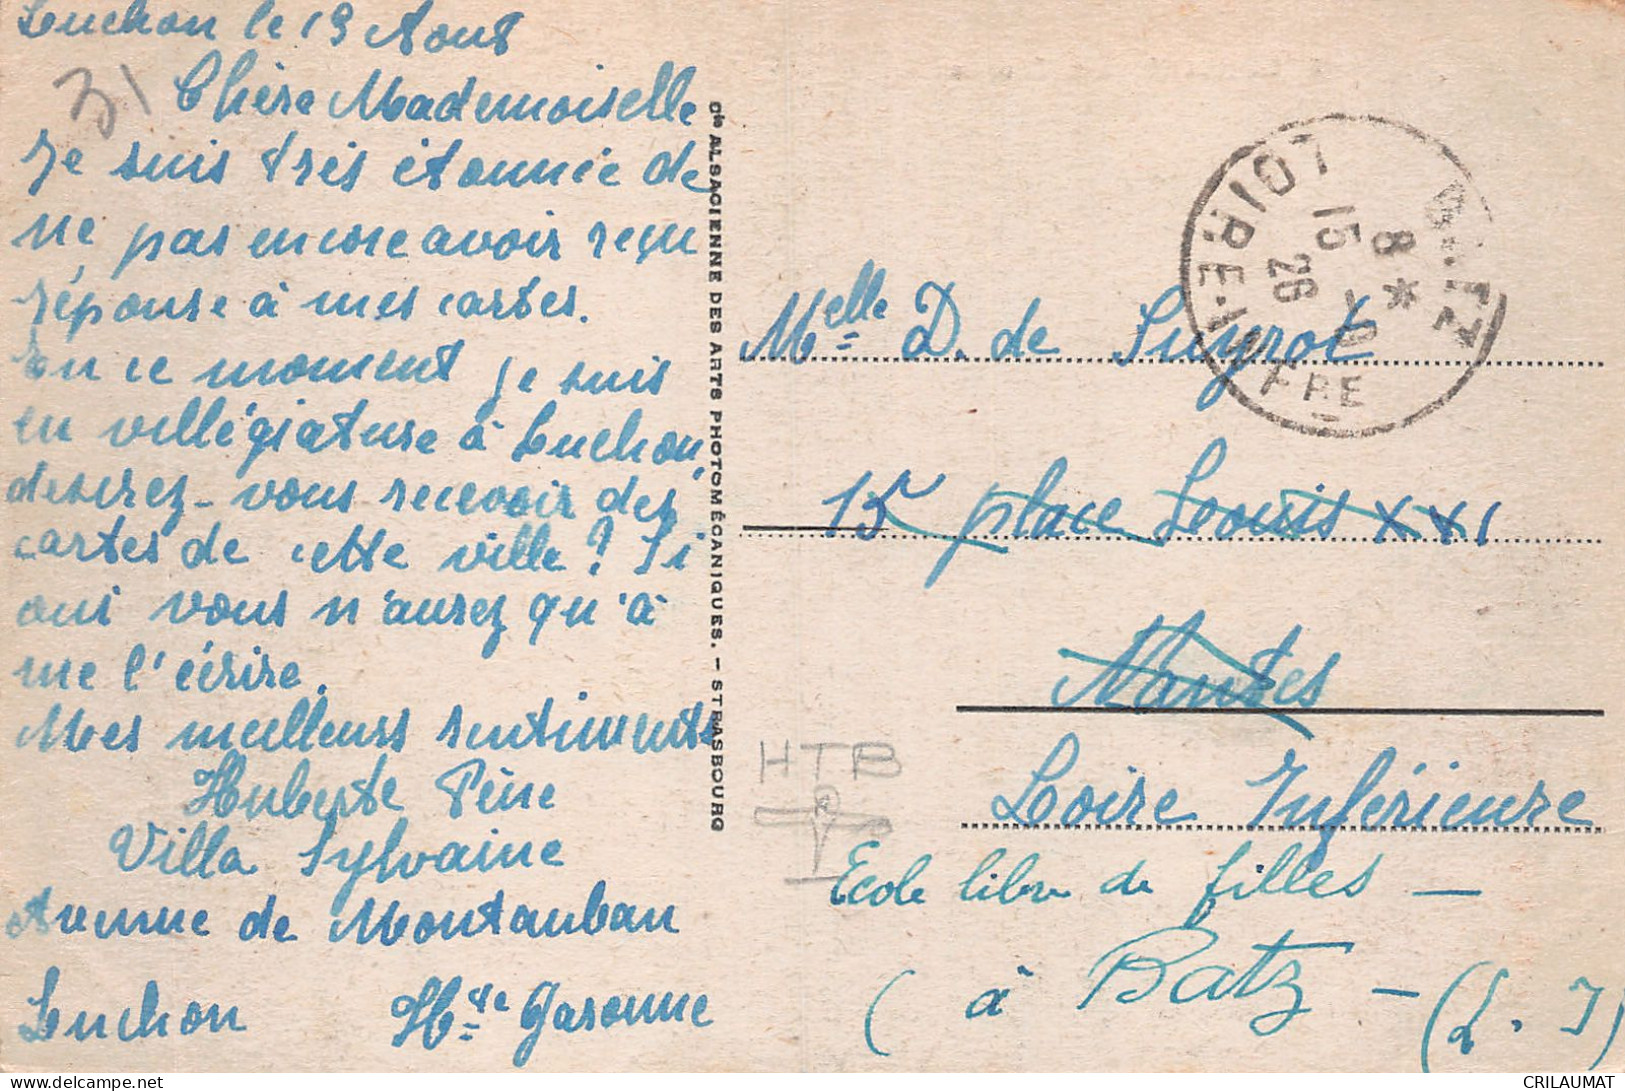 Luchon le 13 Aout
31
Chère Mademoiselle
Je suis très étonnée de
ne pas encore avoir reçu
réponse à mes cartes.
En ce moment je suis
en villégiature à Luchon,
desirez-vous recevoir des
cartes de cette ville? Si
oui vous n'aurez qu'à
me l'écrire.
Mes meilleurs sentiments
Huberte Pène
Villa Sylvaine
Avenue de Montauban
Luchon Hte Garonne
Cie ALSACIENNE DES ARTS PHOTOMÉCANIQUES. – STRASBOURG
LOIRE-INFRE
8 *
15
26
Melle D. de Suyrot
15 place Louis XXI
Nantes
HTB
Loire Inférieure
Ecole libre de filles –
( à Batz – (L. I)
CRILAUMAT